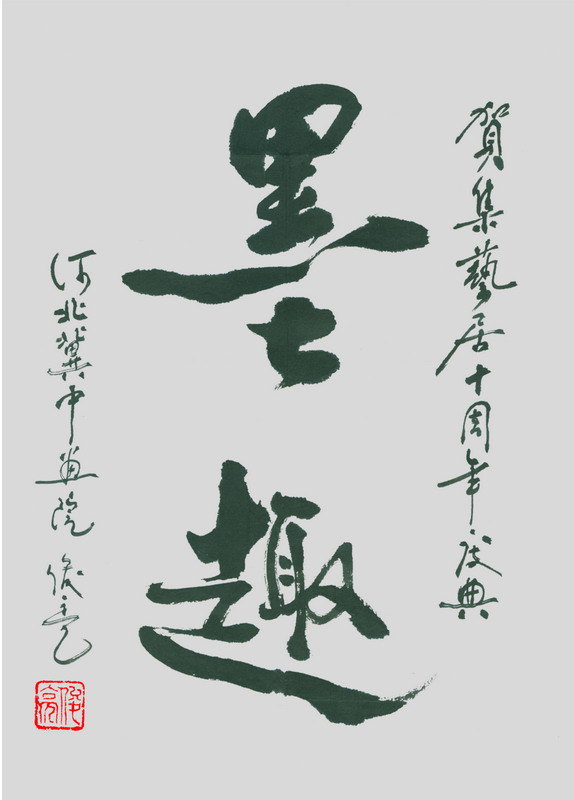 賀集藝居十周年慶典
墨趣
河北冀中畫院